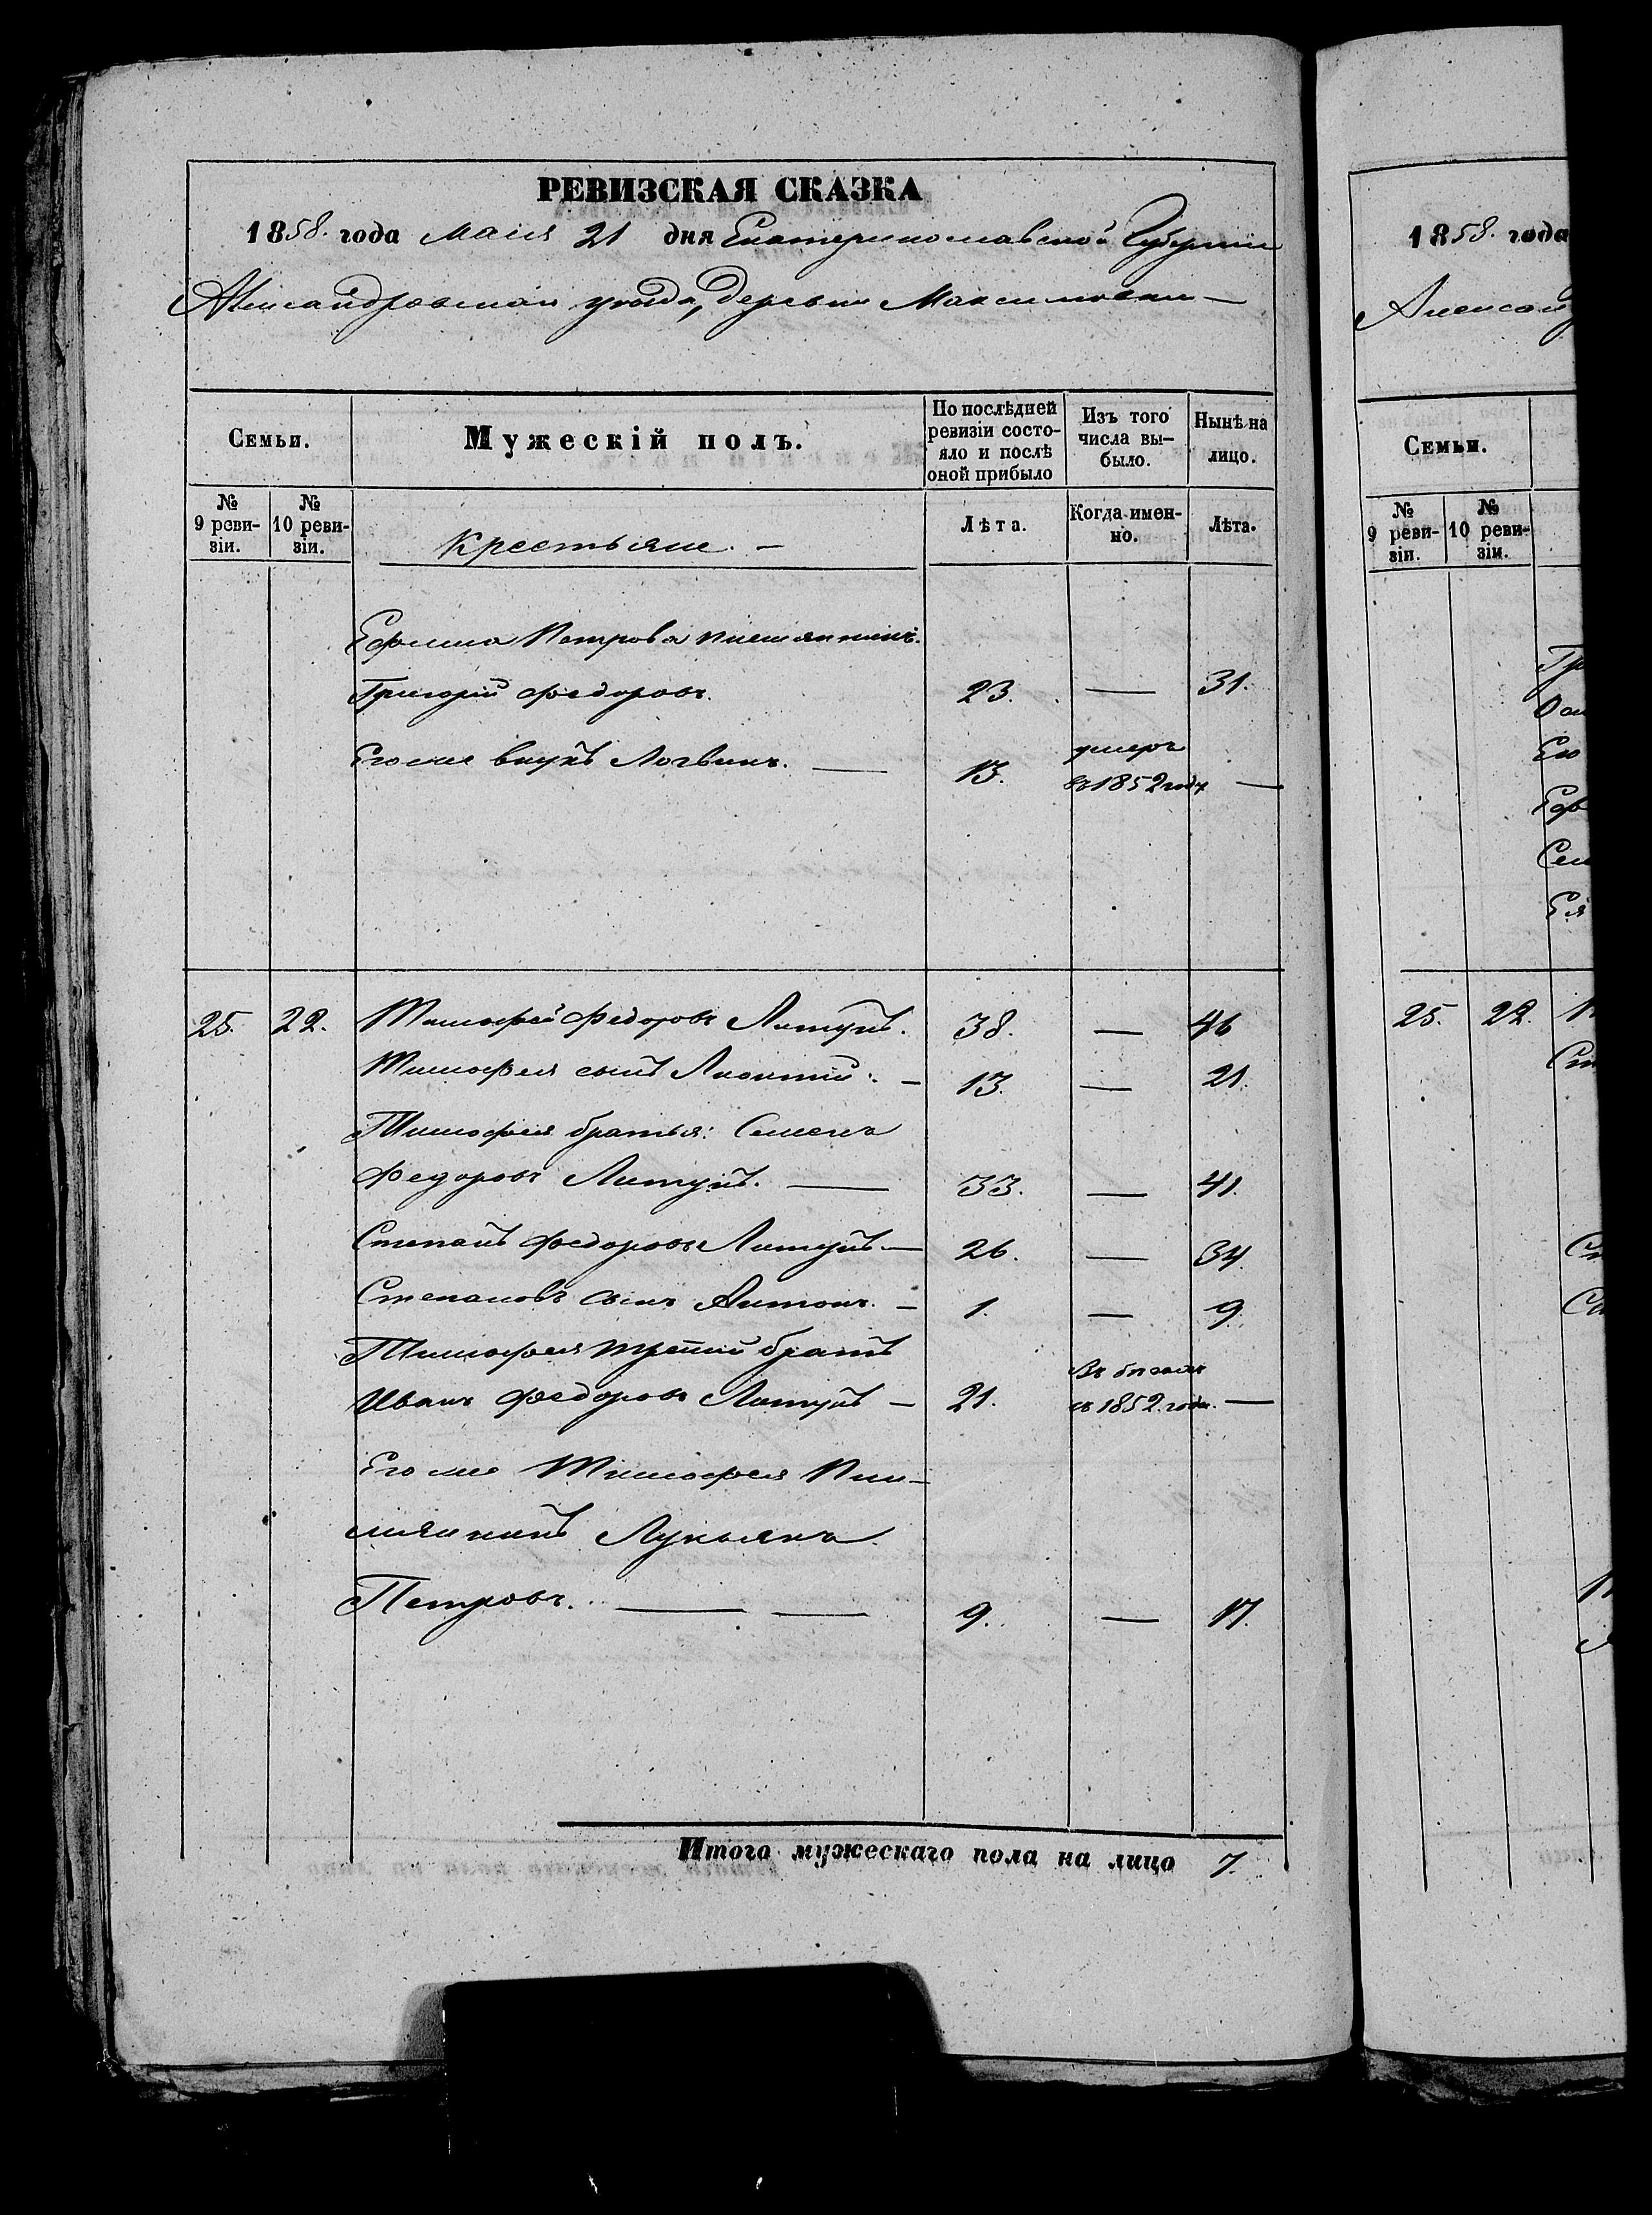 РЕВИЗСКАЯ СКАЗКА
1858. года Маія 21 дня Екатеринославской Губерніи
Александровскаго уѣзда, деревни Максимовки —
Семьи.
Мужескій полъ.
По послѣдней ревизіи состо-
яло и послѣ оной прибыло
Изъ того числа вы-
было.
Нынѣ на лицо.
№ 9 реви-
зіи.
№ 10 реви-
зіи.
Крестьяне. —
Лѣта.
Когда имен-
но.
Лѣта.
Ефима Петрова племянникъ.
Григорій Федоровъ. 23. — 31.
Его же внукъ Логвинъ. — 13. умеръ
въ 1852 году —
25. 22. Тимофей Федоровъ Литунъ. 38. — 46
Тимофея сынъ Леонтій. — 13. — 21.
Тимофея братья: Семенъ
Федоровъ Литунъ. — 33. — 41.
Степанъ Федоровъ Литунъ — 26. — 34.
Степановъ сынъ Антонъ. — 1. — 9.
Тимофея третій братъ
Иванъ Федоровъ Литунъ — 21. Въ бѣгахъ
съ 1852. года. —
Его же Тимофея Пле-
мянникъ Лукьянъ
Петровъ. — — 9. — 17.
Итого мужескаго пола на лицо 7.
1858. года
Александ
Семьи.
№ 9 реви-
зіи.
№ 10 реви-
зіи.
Гр
Ею
Еф
Сем
Ея
25. 22.
Ст